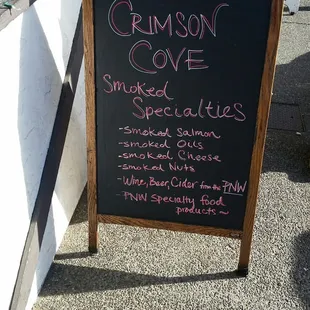 CRIMSON
COVE
Smoked
Specialties
-smoked Salmon
-smoked Oils
-smoked Cheese
-smoked Nuts
-Wine, Beer, Cider from the PNW
-PNW Specialty food
products~